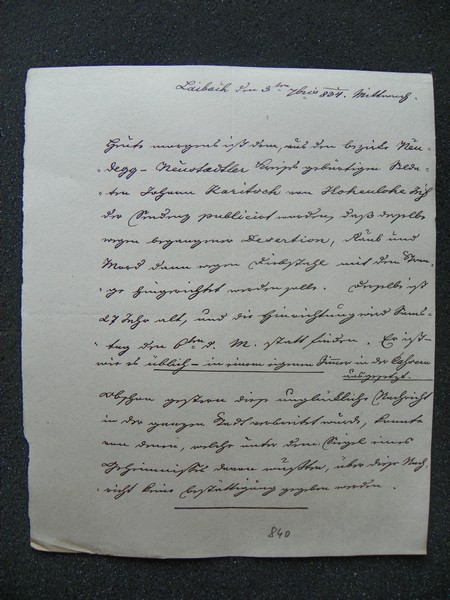 Laibach den 3ten 7bris 834. Mittwoch.
Heute morgens ist dem, aus dem Bezirke Neu-
degg - Neustaedtler Kreises gebürtigen Solda-
ten Johann Karitsch von Hohenlohe Inf.
der Sentenz publicirt worden, daß derselbe
wegen begangener Desertion, Raub und
Mord dann wegen Diebstahl mit dem Stran-
ge hingerichtet werden solle. Derselbe ist
27 Jahr alt, und die Hinrichtung wird Sams-
tag den 6ten d. M. statt finden. Er ist -
wie es üblich - in einem eigenen Zimmer in der Caserne
ausgesetzt.
Obschon gestern diese unglückliche Nachricht
in der ganzen Stadt verbreitet wurde, konnte
von denen, welche unter dem Siegel eines
Geheimnisses davon wußten, über diese Nach-
richt keine Bestättigung gegeben werden.
840